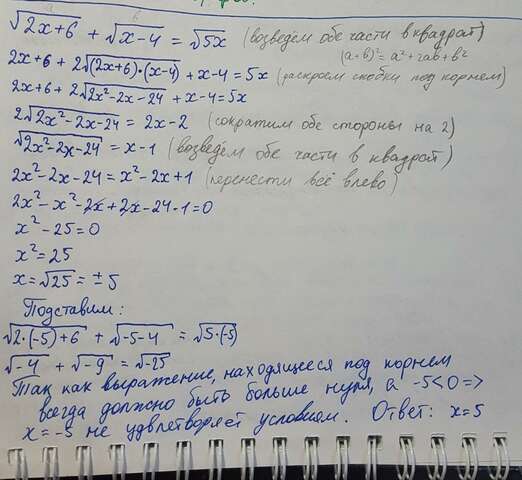 √2x+6 + √x-4 = √5x (возведём обе части в квадрат)
(a+b)² = a² + 2ab + b²
2x+6 + 2√(2x+6)·(x-4) + x-4 = 5x (раскроем скобки под корнем)
2x+6 + 2√2x²-2x-24 + x-4 = 5x
2√2x²-2x-24 = 2x-2 (сократим обе стороны на 2)
√2x²-2x-24 = x-1 (возведём обе части в квадрат)
2x²-2x-24 = x²-2x+1 (перенести всё влево)
2x²-x²-2x+2x-24-1=0
x²-25=0
x²=25
x=√25 = ±5
Подставим:
√2·(-5)+6 + √-5-4 = √5·(-5)
√-4 + √-9 = √-25
Так как выражение, находящееся под корнем
всегда должно быть больше нуля, а -5<0 =>
x=-5 не удвлетворяет условиям. Ответ: x=5